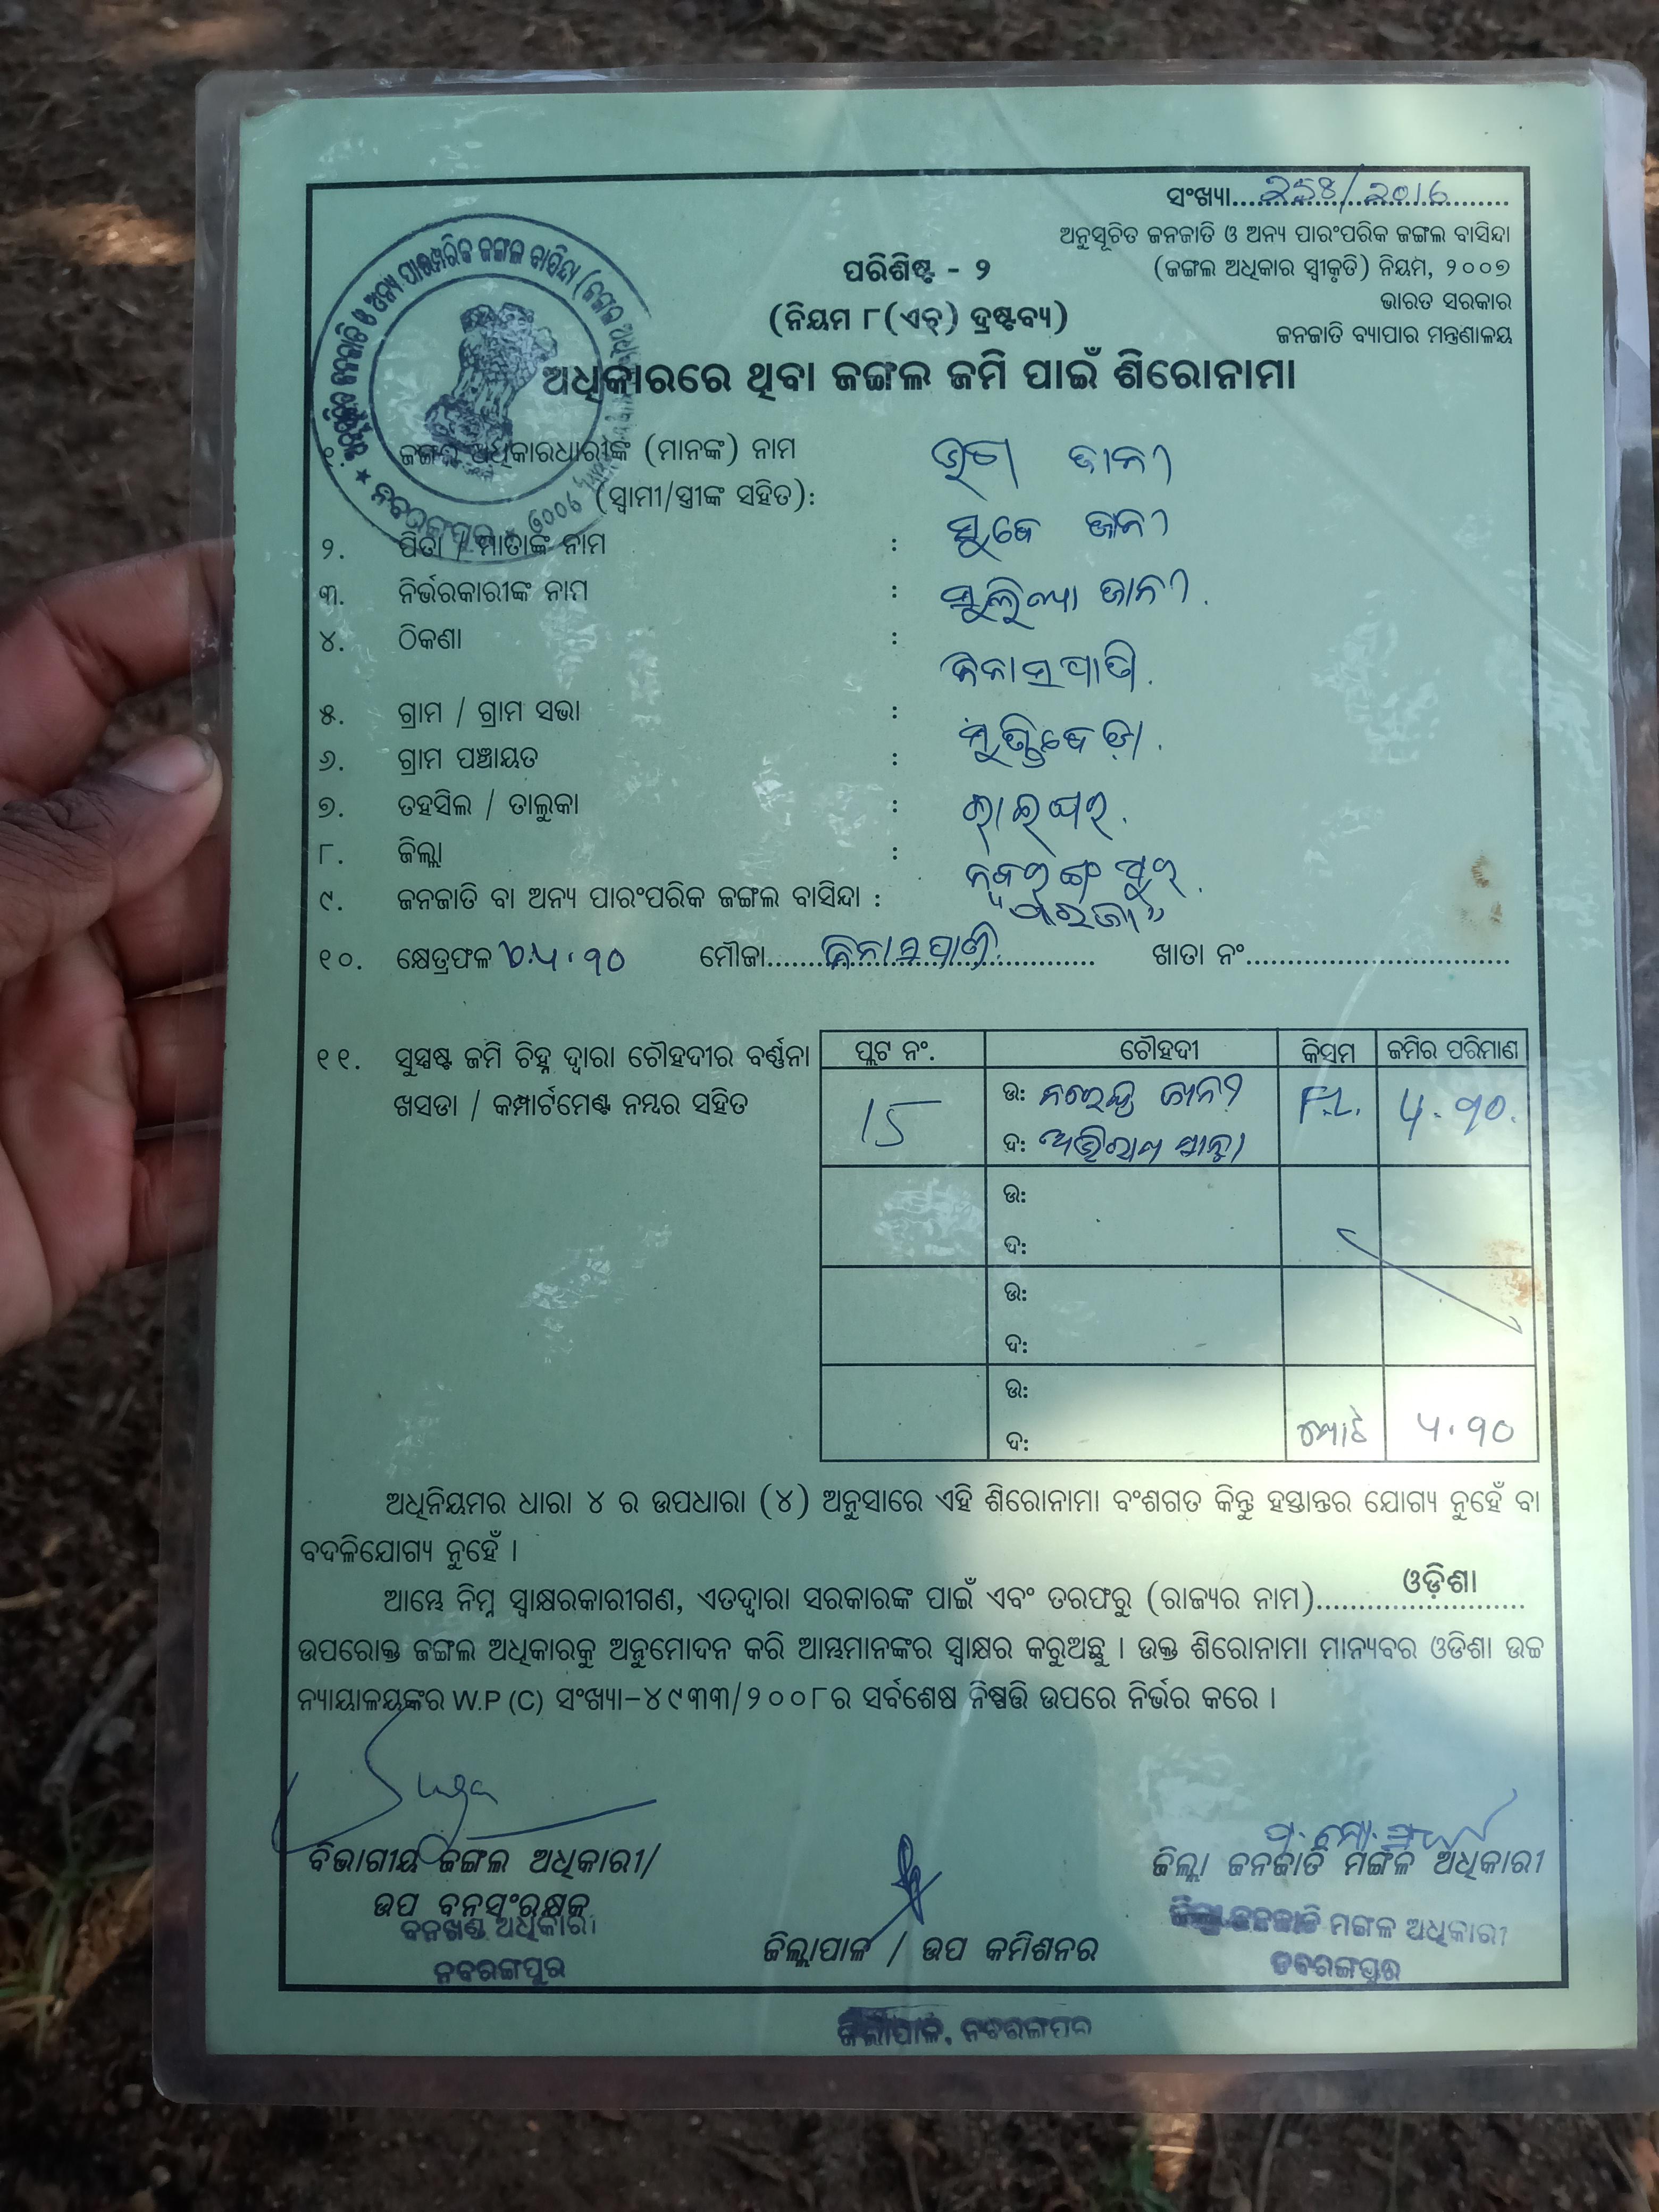 ସଂଖ୍ୟା..........୨୫୫/୨୦୧୬..........
ଅନୁସୂଚିତ ଜନଜାତି ଓ ଅନ୍ୟ ପାରଂପରିକ ଜଙ୍ଗଲ ବାସିନ୍ଦା
ପରିଶିଷ୍ଟ - ୨
(ଜଙ୍ଗଲ ଅଧିକାର ସ୍ୱୀକୃତି) ନିୟମ, ୨୦୦୭
(ନିୟମ ୮(ଏଚ୍) ଦ୍ରଷ୍ଟବ୍ୟ)
ଭାରତ ସରକାର
ଜନଜାତି ବ୍ୟାପାର ମନ୍ତ୍ରଣାଳୟ
ଅଧିକାରରେ ଥିବା ଜଙ୍ଗଲ ଜମି ପାଇଁ ଶିରୋନାମା
୧. ଜଙ୍ଗଲ ଅଧିକାରଧାରୀଙ୍କ (ମାନଙ୍କ) ନାମ ଜାନୀ
(ସ୍ୱାମୀ/ସ୍ତ୍ରୀଙ୍କ ସହିତ):
୨. ପିତା / ମାତାଙ୍କ ନାମ : ଜାନୀ
୩. ନିର୍ଭରକାରୀଙ୍କ ନାମ : ଜାନୀ.
୪. ଠିକଣା :
୫. ଗ୍ରାମ / ଗ୍ରାମ ସଭା :
୬. ଗ୍ରାମ ପଞ୍ଚାୟତ :
୭. ତହସିଲ / ତାଲୁକା : ରାଇଘର.
୮. ଜିଲ୍ଲା : ନବରଙ୍ଗପୁର.
୯. ଜନଜାତି ବା ଅନ୍ୟ ପାରଂପରିକ ଜଙ୍ଗଲ ବାସିନ୍ଦା : "ପରଜା"
୧୦. କ୍ଷେତ୍ରଫଳ ୫.୧୦ ମୌଜା.......... ଖାତା ନଂ..........
୧୧. ସୁସ୍ପଷ୍ଟ ଜମି ଚିହ୍ନ ଦ୍ୱାରା ଚୌହଦୀର ବର୍ଣ୍ଣନା
ଖସଡା / କମ୍ପାର୍ଟମେଣ୍ଟ ନମ୍ବର ସହିତ
ପ୍ଲଟ ନଂ. ଚୌହଦୀ କିସମ ଜମିର ପରିମାଣ
15 ଉ: ନରେନ୍ଦ୍ର ଜାନୀ F.L. ୫.୧୦.
ଦ: ଅଭିରାମ
ଉ:
ଦ:
ଉ:
ଦ:
ଉ:
ଦ: ମୋଟ ୫.୧୦
ଅଧିନିୟମର ଧାରା ୪ ର ଉପଧାରା (୪) ଅନୁସାରେ ଏହି ଶିରୋନାମା ବଂଶଗତ କିନ୍ତୁ ହସ୍ତାନ୍ତର ଯୋଗ୍ୟ ନୁହେଁ ବା
ବଦଳିଯୋଗ୍ୟ ନୁହେଁ ।
ଆମ୍ଭେ ନିମ୍ନ ସ୍ୱାକ୍ଷରକାରୀଗଣ, ଏତଦ୍ଦ୍ୱାରା ସରକାରଙ୍କ ପାଇଁ ଏବଂ ତରଫରୁ (ରାଜ୍ୟର ନାମ)..........ଓଡ଼ିଶା..........
ଉପରୋକ୍ତ ଜଙ୍ଗଲ ଅଧିକାରକୁ ଅନୁମୋଦନ କରି ଆମ୍ଭମାନଙ୍କର ସ୍ୱାକ୍ଷର କରୁଅଛୁ । ଉକ୍ତ ଶିରୋନାମା ମାନ୍ୟବର ଓଡିଶା ଉଚ୍ଚ
ନ୍ୟାୟାଳୟଙ୍କର W.P (C) ସଂଖ୍ୟା-୪୯୩୩/୨୦୦୮ର ସର୍ବଶେଷ ନିଷ୍ପତ୍ତି ଉପରେ ନିର୍ଭର କରେ ।
ବିଭାଗୀୟ ଜଙ୍ଗଲ ଅଧିକାରୀ/
ଉପ ବନସଂରକ୍ଷକ
ବନଖଣ୍ଡ ଅଧିକାରୀ
ନବରଙ୍ଗପୁର
ଜିଲ୍ଲାପାଳ / ଉପ କମିଶନର
ଜିଲ୍ଲାପାଳ, ନବରଙ୍ଗପୁର
ଜିଲ୍ଲା ଜନଜାତି ମଙ୍ଗଳ ଅଧିକାରୀ
ଜିଲ୍ଲା ଜନଜାତି ମଙ୍ଗଳ ଅଧିକାରୀ
ନବରଙ୍ଗପୁର